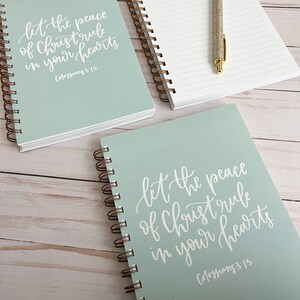 let the peace
of Christ rule
in your hearts
Colossians 3:15
let the peace
of Christ rule
in your hearts
Colossians 3:15